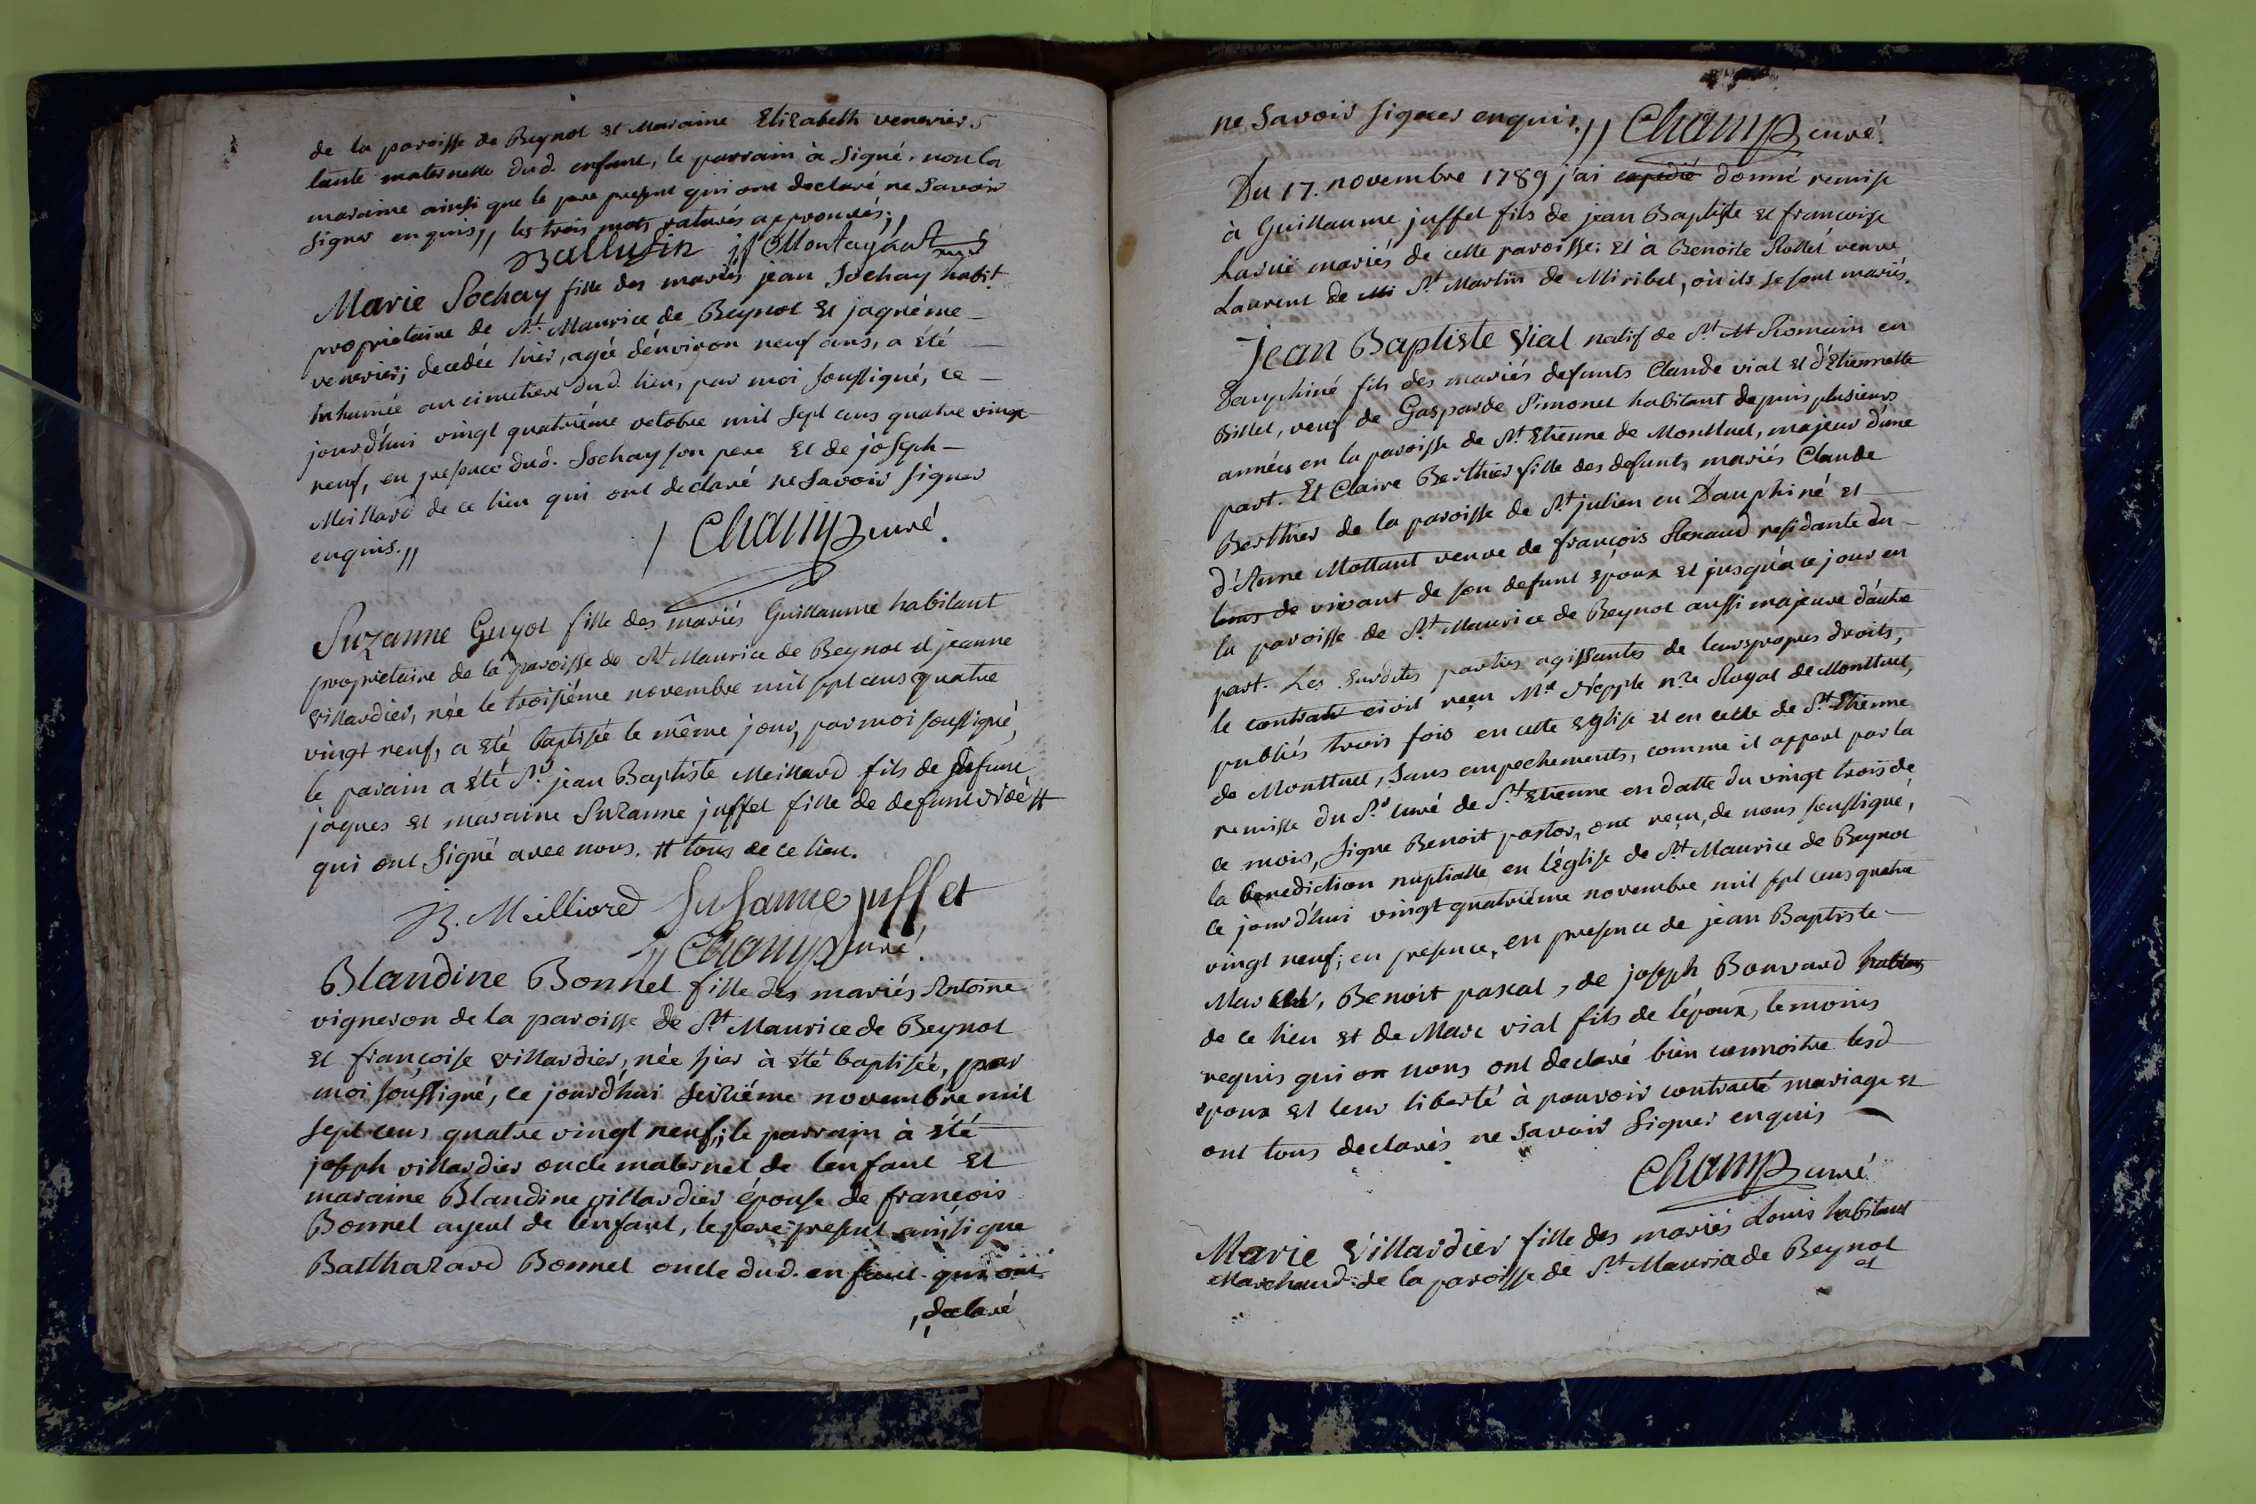 de la paroisse de Beynot et Maraine Elizabeth venerier
tante maternelle dud. enfant, le parrain à signé, non la
maraine ainsi que le pere present qui ont declaré ne savoir
signer enquis // les trois mots raturés approuvés; //
Ballufin
Marie Sochay fille des mariés jean Sochay habit.
proprietaire de St. Maurice de Beynot et jaqueme
venerier; decedée hier, agée d'environ neuf ans, a été
inhumée au cimetiere dud. lieu, par moi soussigné, ce
jourd'hui vingt quatriéme octobre mil sept cens quatre vingt
neuf, en presence dud. Sochay son pere et de joseph
Meillard de ce lieu qui ont declaré ne savoir signer
enquis. // Champ curé.
Suzanne Guyot fille des mariés Guillaume habitant
proprietaire de la paroisse de St Maurice de Beynot et jeanne
villardier, née le troisiéme novembre mil sept cens quatre
vingt neuf, a été baptisée le même jour, par moi soussigné,
le parain a été Sr. jean Baptiste Meillard fils de defunt
jaques et maraine Suzanne juffet fille de defunt #
qui ont signé avec nous. # tous de ce lieu.
B. Meilliard Susanne juffet
// Champ curé.
Blandine Bonnet fille des mariés Antoine
vigneron de la paroisse de St. Maurice de Beynot
et françoise villardier, née hier à été baptisée, par
moi soussigné, ce jourd'hui seiziéme novembre mil
sept cens quatre vingt neuf; le parrain à été
joseph villardier oncle maternel de l'enfant et
maraine Blandine villardier épouse de françois
Bonnet ayeul de l'enfant, le pere present ainsi que
Balthazard Bonnet oncle dud. enfant qui ont
declaré
ne savoir signer enquis. // Champ curé.
Du 17. novembre 1789 j'ai expedié donné remise
à Guillaume juffet fils de jean Baptiste et francoise
Larue mariés de cette paroisse; et à Benoite Rollet veuve
Laurent de Mi St. Martin de Miribel, où ils se sont mariés.
Jean Baptiste Vial natif de St. Romain en
Dauphiné fils des mariés defunts Claude vial et d'Etiennette
Billet, veuf de Gasparde Simonet habitant depuis plusieurs
années en la paroisse de St. Etienne de Montluel, majeur d'une
part. Et Claire Berthier fille des defunts mariés Claude
Berthier de la paroisse de St. julien en Dauphiné et
d'Anne Mottant veuve de françois Renaud residante du
tems de vivant de son defunt epoux et jusqu'à ce jour en
la paroisse de St. Maurice de Beynot aussi majeure d'autre
part. Les susdites parties agissantes de leurs propres droits,
le contrat civil reçu Me. Nepple nre. Royal de Montluel,
publiés trois fois en cette Eglise et en celle de St. Etienne
de Montluel, sans empechements, comme il appert par la
remisse du Sr. curé de St. Etienne en datte du vingt trois de
ce mois, signe Benoit pastor, ont reçu, de nous soussigné,
la benediction nuptialle en l'église de St. Maurice de Beynot
ce jourd'hui vingt quatriéme novembre mil sept cens quatre
vingt neuf; en presence, en presence de jean Baptiste
Benoit pascal, de joseph Bonvard
de ce lieu et de Marc vial fils de l'époux, temoins
requis qui on nous ont declaré bien connoitre lesd
epoux et leur liberté à pouvoir contracté mariage et
ont tous declarés ne savoir signer enquis
Champ curé
Marie Villardier fille des mariés Louis habitant
Marchand de la paroisse de St. Maurice de Beynot
et